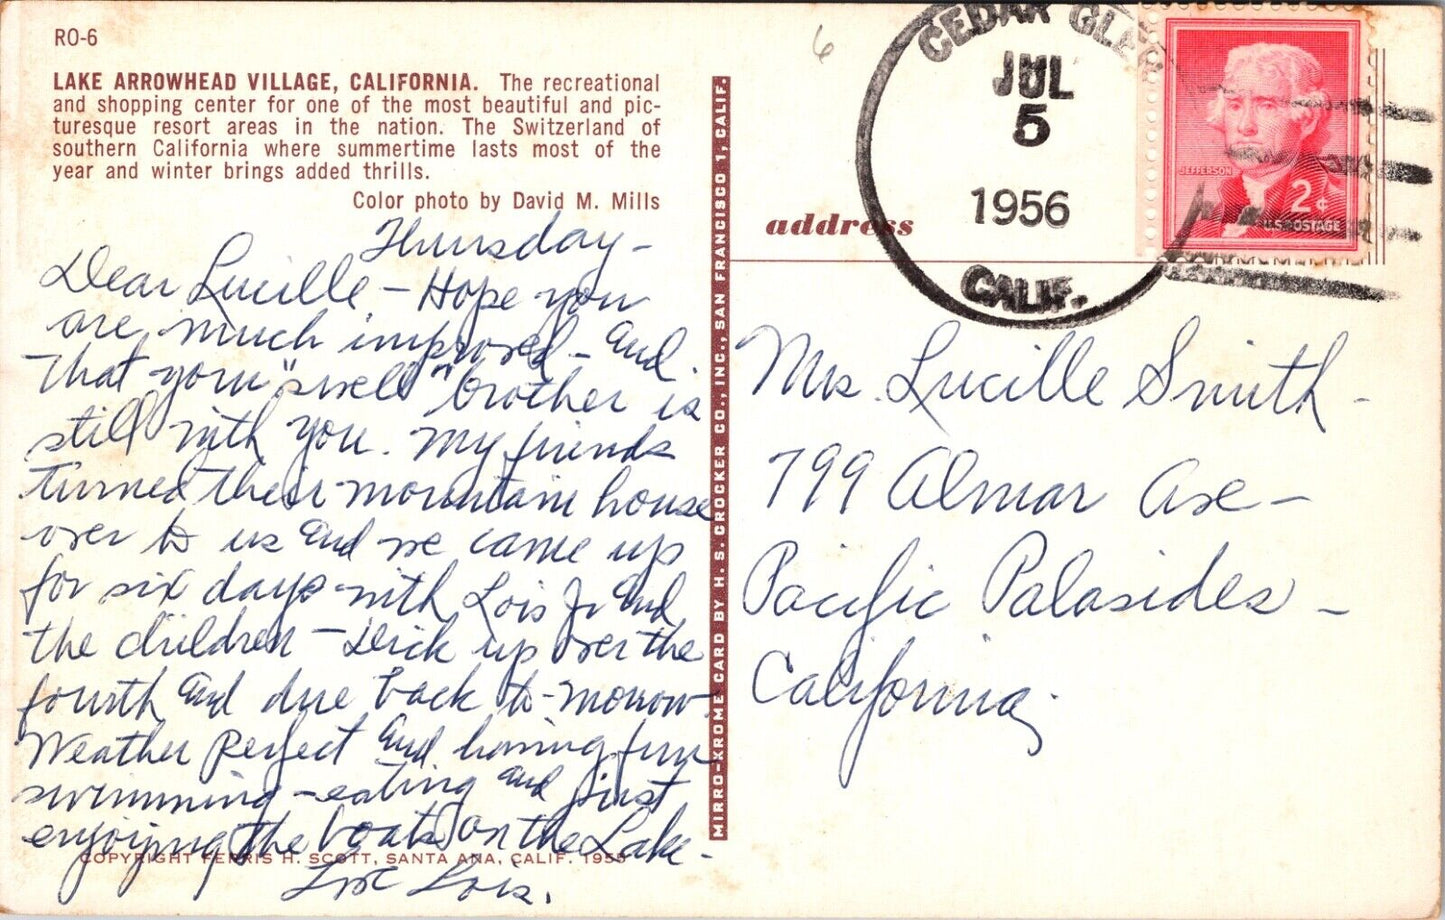 RO-6
LAKE ARROWHEAD VILLAGE, CALIFORNIA. The recreational
and shopping center for one of the most beautiful and pic-
turesque resort areas in the nation. The Switzerland of
southern California where summertime lasts most of the
year and winter brings added thrills.
Color photo by David M. Mills
Thursday -
Dear Lucille - Hope you
are much improved - and
that your "swell" brother is
still with you. My friends
turned their mountain house
over to us and we came up
for six days with Lois Jr and
the children - Dick up over the
fourth and due back to-morrow.
Weather perfect and having fun
swimming - eating and just
enjoying the boats on the Lake -
Love Lois.
COPYRIGHT FERRIS H. SCOTT, SANTA ANA, CALIF. 1955
MIRRO-KROME CARD BY H. S. CROCKER CO., INC., SAN FRANCISCO 1, CALIF.
6
CEDAR GLEN
JUL
5
1956
CALIF.
JEFFERSON
2¢
U.S. POSTAGE
address
Mrs. Lucille Smith -
799 Almar Ave -
Pacific Palasides -
California.